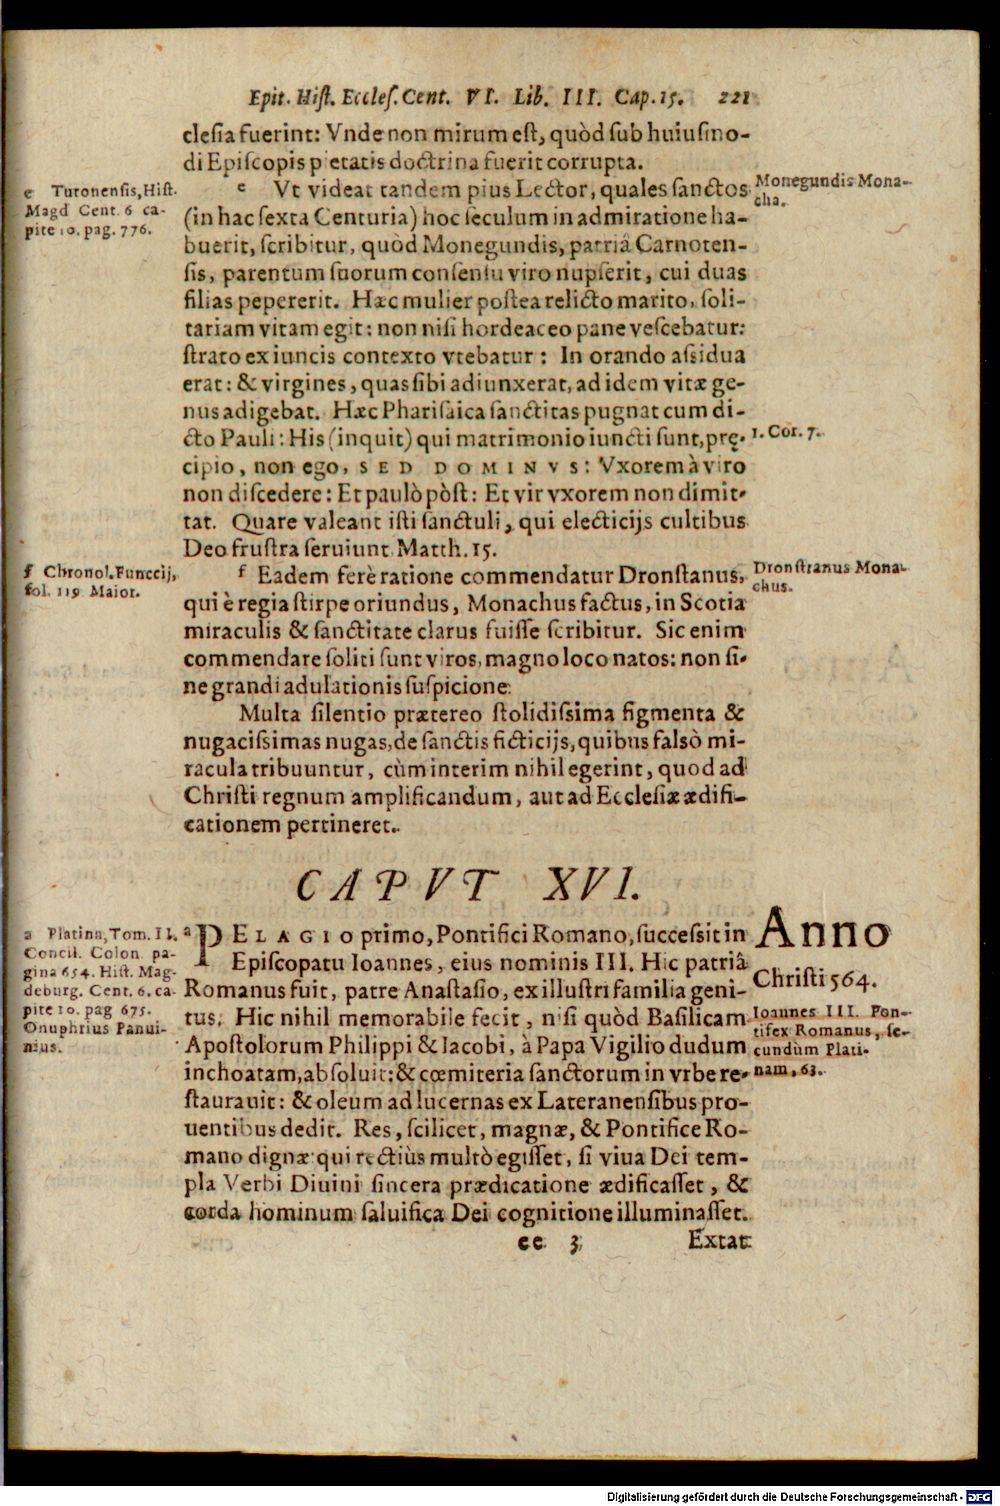 Epit. Hiſt. Eccleſ. Cent. VI. Lib. III. Cap. 15. 221
cleſia fuerint: Vnde non mirum eſt, quòd ſub huiuſmo-
di Epiſcopis pietatis doctrina fuerit corrupta.
e Vt videat tandem pius Lector, quales ſanctos
(in hac ſexta Centuria) hoc ſeculum in admiratione ha-
buerit, ſcribitur, quòd Monegundis, patriâ Carnoten-
ſis, parentum ſuorum conſenſu viro nupſerit, cui duas
filias pepererit. Hæc mulier poſtea relicto marito, ſoli-
tariam vitam egit: non niſi hordeaceo pane veſcebatur:
ſtrato ex iuncis contexto vtebatur: In orando aſsidua
erat: & virgines, quas ſibi adiunxerat, ad idem vitæ ge-
nus adigebat. Hæc Phariſaica ſanctitas pugnat cum di-
cto Pauli: His (inquit) qui matrimonio iuncti ſunt, prę-
cipio, non ego, SED DOMINVS: Vxorem à viro
non diſcedere: Et paulò pòſt: Et vir vxorem non dimit-
tat. Quare valeant iſti ſanctuli, qui electicijs cultibus
Deo fruſtra ſeruiunt Matth. 15.
f Eadem ferè ratione commendatur Dronſtanus,
qui è regia ſtirpe oriundus, Monachus factus, in Scotia
miraculis & ſanctitate clarus fuiſſe ſcribitur. Sic enim
commendare ſoliti ſunt viros, magno loco natos: non ſi-
ne grandi adulationis ſuſpicione.
Multa ſilentio prætereo ſtolidiſsima figmenta &
nugaciſsimas nugas, de ſanctis ficticijs, quibus falsò mi-
racula tribuuntur, cùm interim nihil egerint, quod ad
Chriſti regnum amplificandum, aut ad Eccleſiæ ædifi-
cationem pertineret.
e Turonenſis, Hiſt.
Magd Cent. 6 ca-
pite 10. pag. 776.
f Chronol. Funccij,
fol. 119 Maior.
Monegundis Mona-
cha.
1. Cor. 7.
Dronſtranus Mona-
chus.
CAPVT XVI.
a PELAGIO primo, Pontifici Romano, ſucceſsit in
Epiſcopatu Ioannes, eius nominis III. Hic patriâ
Romanus fuit, patre Anaſtaſio, ex illuſtri familia geni-
tus. Hic nihil memorabile fecit, niſi quòd Baſilicam
Apoſtolorum Philippi & Iacobi, à Papa Vigilio dudum
inchoatam, abſoluit: & cœmiteria ſanctorum in vrbe re-
ſtaurauit: & oleum ad lucernas ex Lateranenſibus pro-
uentibus dedit. Res, ſcilicet, magnæ, & Pontifice Ro-
mano dignæ: qui rectiùs multò egiſſet, ſi viua Dei tem-
pla Verbi Diuini ſincera prædicatione ædificaſſet, &
corda hominum ſaluifica Dei cognitione illuminaſſet.
ee 3 Extat
a Platina, Tom. II.
Concil. Colon. pa-
gina 654. Hiſt. Mag-
deburg. Cent. 6. ca-
pite 10. pag 675.
Onuphrius Panui-
nius.
Anno
Chriſti 564.
Ioannes III. Pon-
tifex Romanus, ſe-
cundùm Plati-
nam, 63.
Digitalisierung gefördert durch die Deutsche Forschungsgemeinschaft - DFG